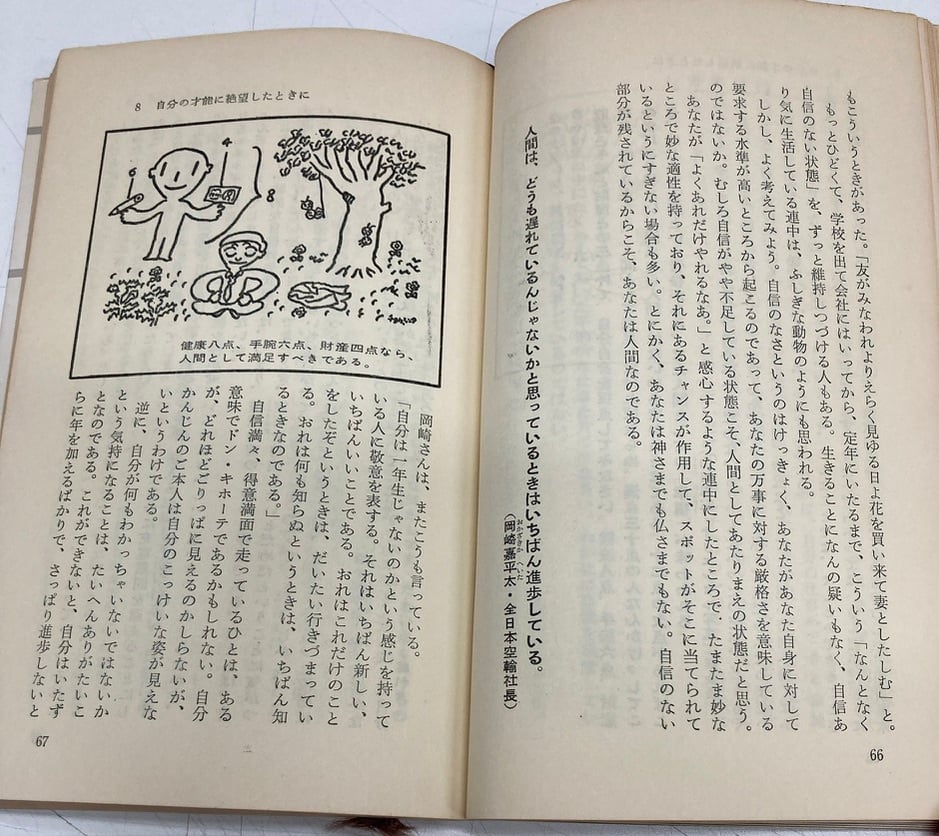 もこういうときがあった。「友がみなわれよりえらく見ゆる日よ花を買い来て妻としたしむ」と。
もっとひどくて、学校を出て会社にはいってから、定年にいたるまで、こういう「なんとなく
自信のない状態」を、ずっと維持しつづける人もある。生きることになんの疑いもなく、自信あ
り気に生活している連中は、ふしぎな動物のようにも思われる。
しかし、よく考えてみよう。自信のなさというのはけっきょく、あなたがあなた自身に対して
要求する水準が高いところから起こるのであって、あなたの万事に対する厳格さを意味している
のではないか。むしろ自信がやや不足している状態こそ、人間としてあたりまえの状態だと思う。
あなたが「よくあれだけやれるなあ。」と感心するような連中にしたところで、たまたま妙な
ところで妙な適性を持っており、それにあるチャンスが作用して、スポットがそこに当てられて
いるというにすぎない場合も多い。とにかく、あなたは神さまでも仏さまでもない。自信のない
部分が残されているからこそ、あなたは人間なのである。
人間は、どうも遅れているんじゃないかと思っているときはいちばん進歩している。
(岡崎嘉平太・全日本空輸社長)
おかざきかへいた
66
8 自分の才能に絶望したときに
6
4
8
健康八点、手腕六点、財産四点なら、
人間として満足すべきである。
岡崎さんは、またこうも言っている。
「自分は一年生じゃないのかという感じを持って
いる人に敬意を表する。それはいちばん新しい、
いちばんいいことである。おれはこれだけのこと
をしたぞというときは、だいたい行きづまってい
る。おれは何も知らぬというときは、いちばん知
るときなのである。」
自信満々、得意満面で走っているひとは、ある
意味でドン・キホーテであるかもしれない。自分
が、どれほどごりっぱに見えるのかしらないが、
かんじんのご本人は自分のこっけいな姿が見えな
いというわけである。
逆に、自分が何もわかっちゃいないではないか
という気持になることは、たいへんありがたいこ
となのである。これができないと、自分はいたず
らに年を加えるばかりで、さっぱり進歩しないと
67